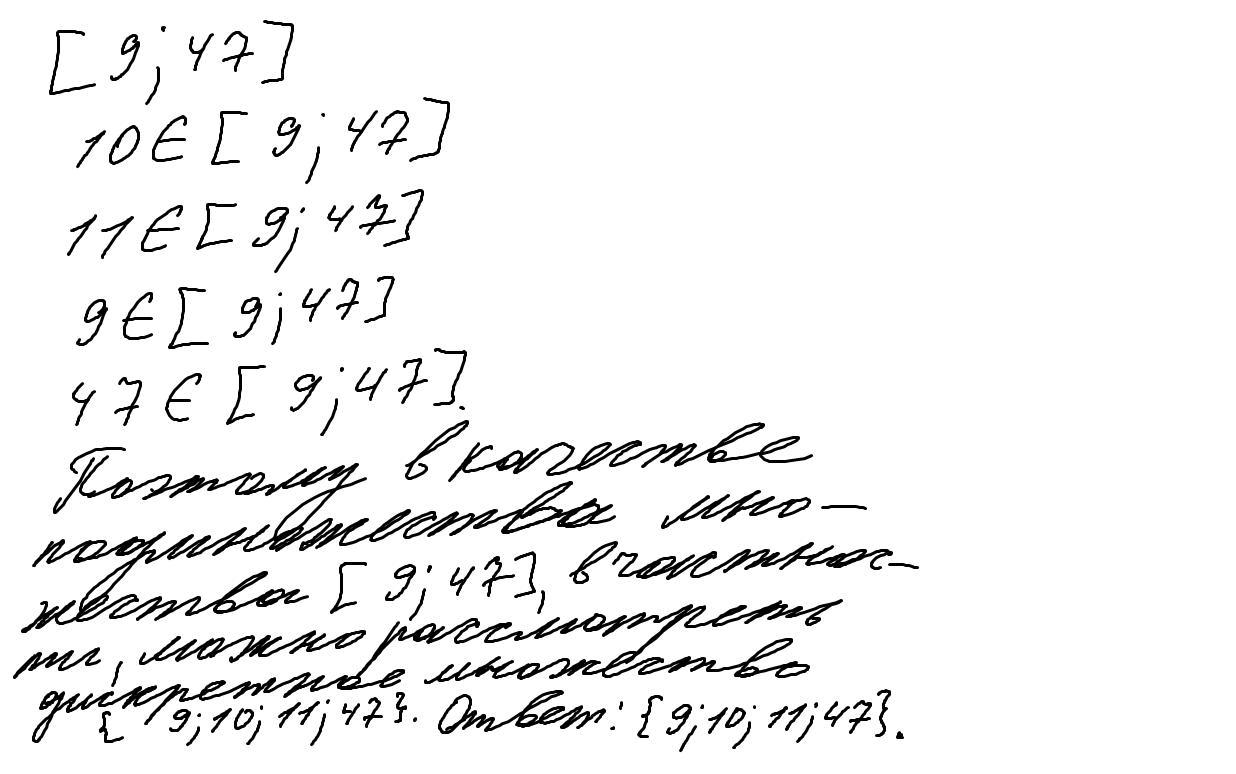 [9; 47]
10 ∈ [9; 47]
11 ∈ [9; 47]
9 ∈ [9; 47]
47 ∈ [9; 47].
Поэтому в качестве
подмножества мно-
жества [9; 47], в частнос-
ти, можно рассмотреть
дискретное множество
{9; 10; 11; 47}. Ответ: {9; 10; 11; 47}.